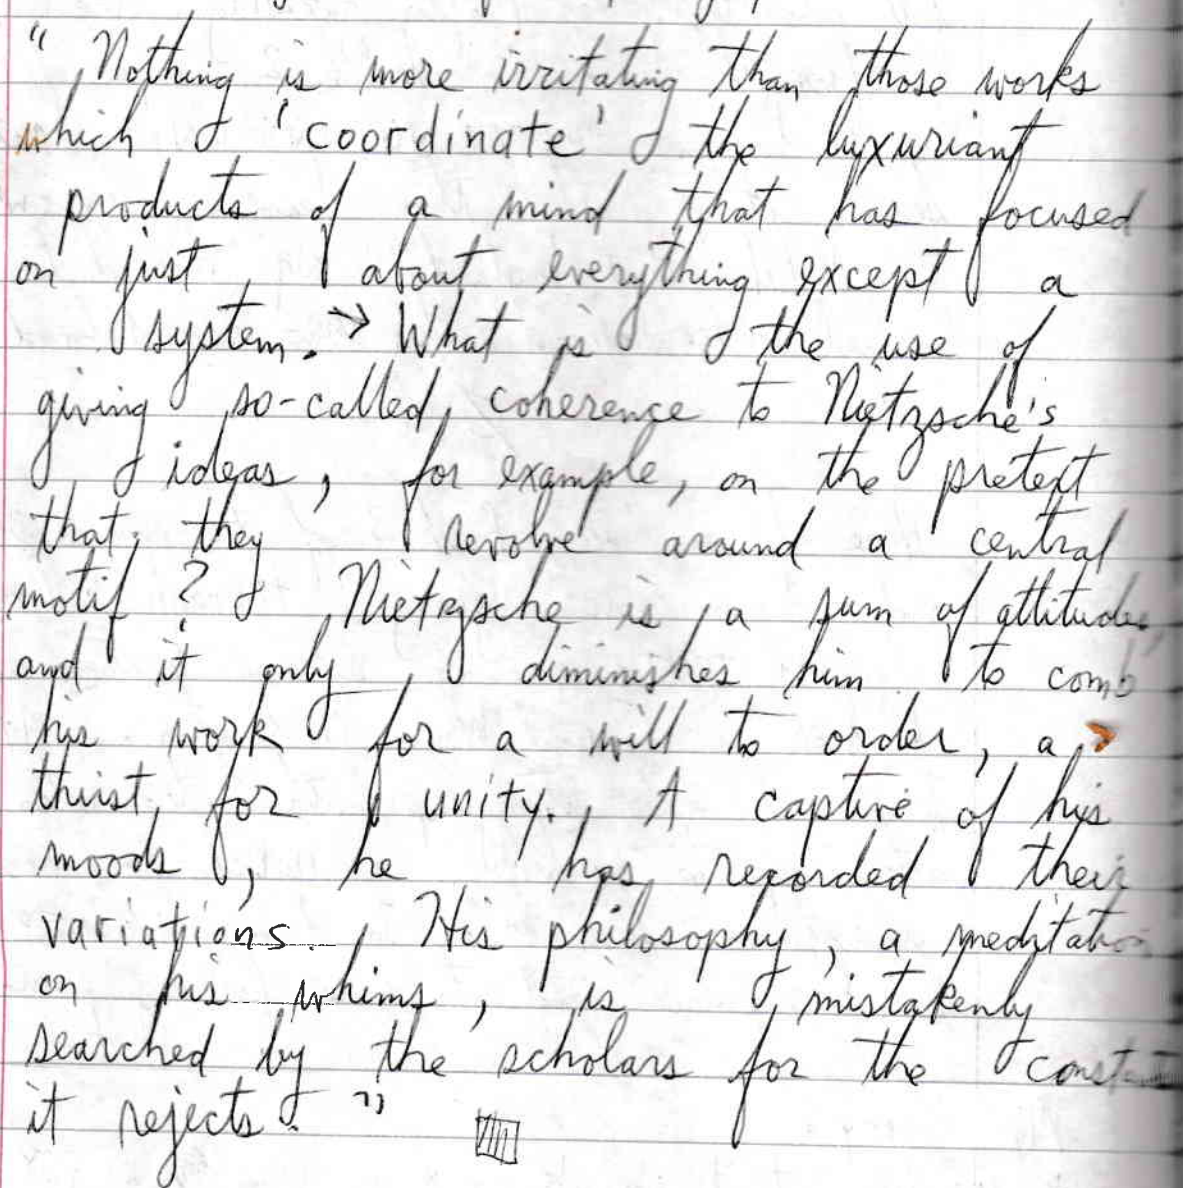 " Nothing is more irritating than those works
which 'coordinate' the luxuriant
products of a mind that has focused
on just about everything except a
system. → What is the use of
giving so-called coherence to Nietzsche's
ideas, for example, on the pretext
that they revolve around a central
motif? Nietzsche is a sum of attitudes,
and it only diminishes him to comb
his work for a will to order, a
thirst for unity. A captive of his
moods, he has recorded their
variations. His philosophy, a meditation
on his whims, is mistakenly
searched by the scholars for the
it rejects."